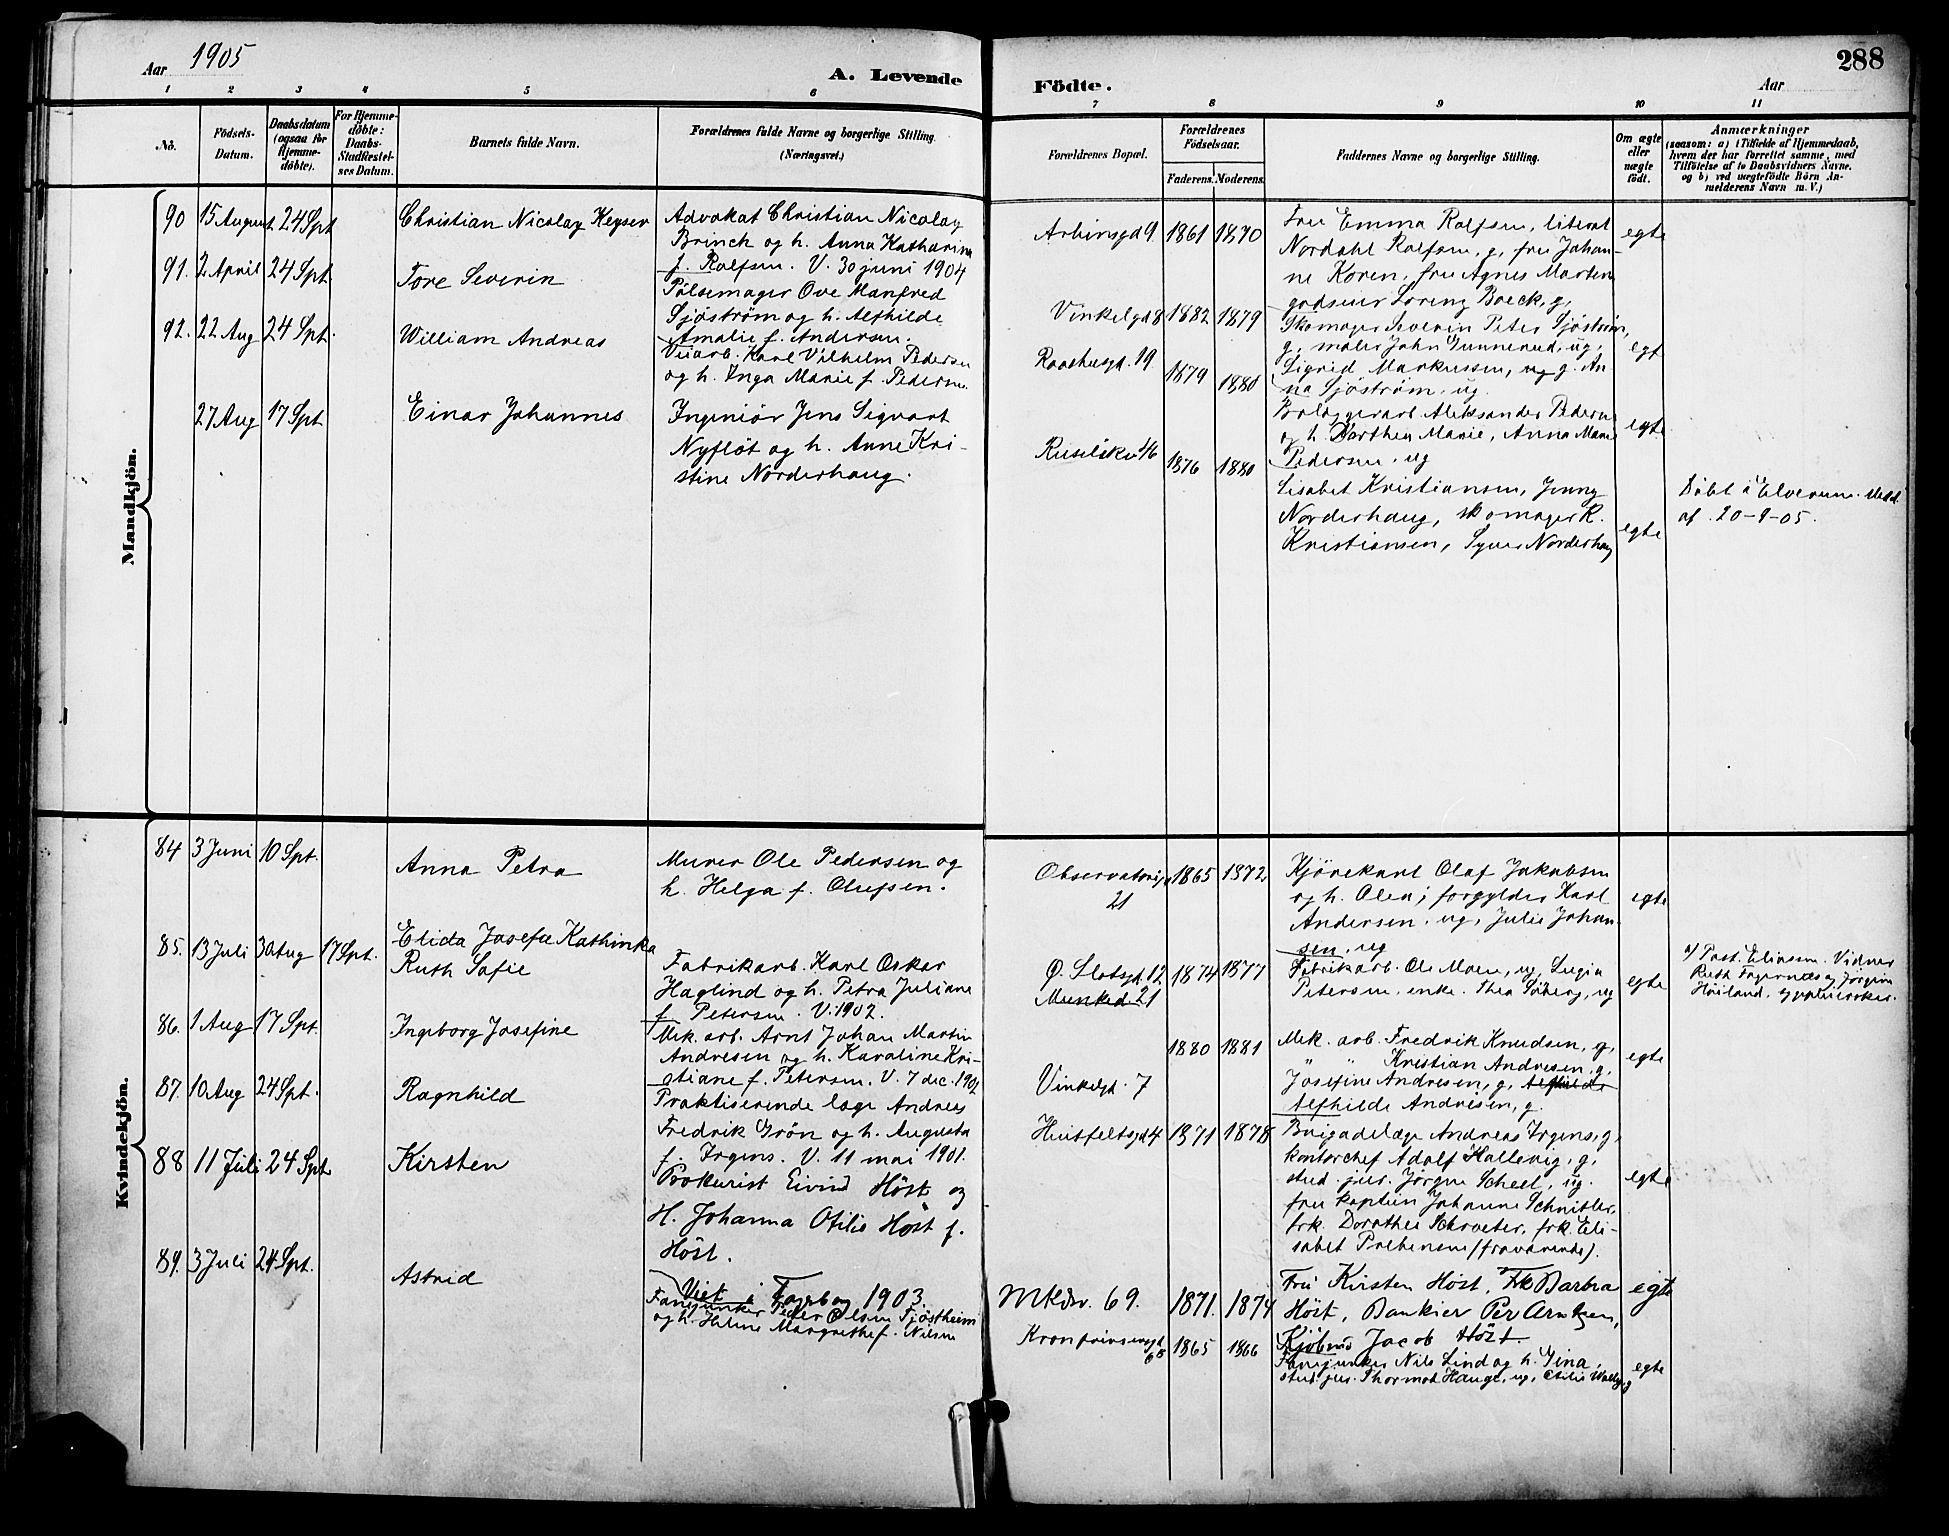 Aar 1905
A. Levende
Födte.
Aar
288
1 2 3 4 5 6 7 8 9 10 11
No.
Födsels-
Datum.
Daabsdatum
(ogsaa for
Hjemme-
döbte).
For Hjemme-
döbte:
Daabs-
Stadfæstel-
ses Datum.
Barnets fulde Navn.
Forældrenes fulde Navne og borgerlige Stilling.
(Næringsvei.)
Forældrenes Bopæl.
Forældrenes
Födselsaar.
Faderens. Moderens.
Faddernes Navne og borgerlige Stilling.
Om ægte
eller
uægte
født.
Anmærkninger
(saasom: a) i Tilfælde af Hjemmedaab,
hvem der har forrettet samme, med
Tilföielse af to Daabsvidners Navne,
og b) ved uægtefödte Börn An-
melderens Navn m. V.)
Mandkjön.
90 15 August 24 Spt
Christian Nicolay Keyser
Advokat Christian Nicolay
Brinch og h. Anna Katharina
f. Rolfsen. V. 30 juni 1904
Arbinsgd 9. 1861 1870
Fru Emma Rolfsen, literat
Nordahl Rolfsen, g, fru Johan-
ne Koren, fru Agnes Martens
godseier Lorenz Boeck, g,
egte
91. 2 April 24 Spt
Tore Severin
Pölsemager Ove Manfred
Sjöström og h. Alfhilde
Amalie f. Andersen.
Vinkelgd 8 1882 1879
Skomager Severin Peter Sjöström,
g, maler John Gunnerud, ug,
Sigrid Markussen, ug g. An-
na Sjöström, ug
egt
92. 22 Aug 24 Spt.
William Andreas
Karl Vilhelm Pedersen
og h. Inga Marie f. Pedersen.
Raadhusgd. 19 1879 1880
Aleksander Pedersen
og h. Dorthea Marie, Anna Marie
Pedersen, ug
egte
27 Aug 17 Spt
Einar Johannes
Ingeniör Jens Sigvart
Nyflöt og h. Anne Kri-
stine Norderhaug.
Ruselökv 46 1876 1880
Lisabet Kristiansen, Jenny
Norderhaug, skomager R.
Kristiansen, Syver Norderhaug
egte
Döbt i Elverum. Medd.
af 20-9-05.
Kvindekjön.
84 3 Juni 10 Spt.
Anna Petra
Murer Ole Pedersen og
h. Helga f. Olufsen.
Observatorigd 1865 1872
21
Kjörekarl Olaf Jakobsen
og h. Olea; forgylder Karl
Andersen, ug, Julie Johan-
sen, ug
egte
85. 13 Juli 30 Aug 17 Spt.
Elida Josefie Kathinka
Ruth Sofie
Fabrikarb. Karl Oskar
Haglind og h. Petra Juliane
f. Petersen. V. 1902.
Ø. Slotsgd. 12 1874 1877
Munked 21
Fabrikarb. Ole Moen, ug,
Petersen, enke. Thea ug
egte
a) Past. Eliassen. Vidner
Ruth Fagernæs og Jörgine
Höiland,
86. 1 Aug 17 Spt.
Ingeborg Josefine
Mek. arb. Arnt Johan Martin
Andresen og h. Karoline Kri-
stiane f. Petersen. V. 7 dec. 1902
Vinkelgd. 7
1880 1881
Mek. arb. Fredrik Knudsen, g,
" " Kristian Andresen, g,
Josefine Andresen, g, Alfhilde
Alfhilde Andresen, g.
egte
87. 10 Aug 24 Spt.
Ragnhild
Praktiserende læge Andreas
Fredrik Grön og h. Augusta
f. Irgens. V. 11 mai 1901.
Huitfeltsgd 4 1871 1878
Brigadelæge Andreas Irgens, g,
kontorchef Adolf Hallevig, g,
stud. jur. Jörgen Scheel, ug.
fru kaptein Johanne Schnitler,
frk. Dorothea Schroeter, frk. Eli-
sabet Prebensen (fraværende).
egte
88 11 Juli 24 Spt
Kirsten
Prokurist Eivind Höst og
H. Johanna Otilie Höst f.
Höst.
Viet i 1903.
Mkdsv. 69. 1871. 1874
Fru Kirsten Höst, Frk Barbra
Höst, Bankier Per Arntzen,
Kjöbmd Jacob Höst.
egte
89. 3 Juli 24 Spt.
Astrid
Fanejunker Peder Olsen Tjöstheim
og h. Helene Margrethe f. Nilsen
Kronprinsensgd 1865 1866
Fanejunker Nils Lind og h. Gina,
stud. jur. Thormod Hauge, ug,
egte